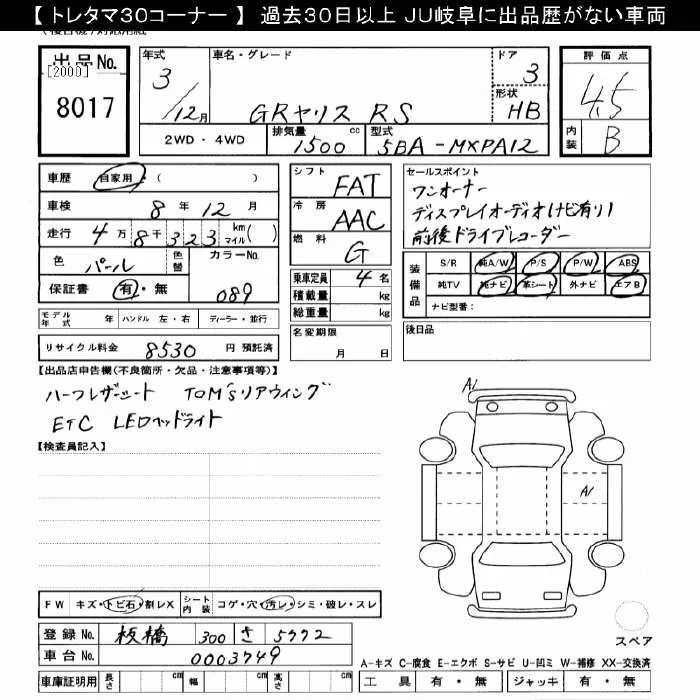 【 トレタマ30コーナー 】 過去30日以上 JU岐阜に出品歴がない車両
出品No.
[2000]
8017
年式 車名・グレード ドア
3 3
/12月 GRヤリス RS 形状 HB
2WD・4WD 排気量 1500 cc 型式 5BA-MXPA12
評価点
4.5
内装 B
車歴 自家用 ( )
車検 8年 12月
走行 4万 8千 323 km マイル( )
色 パール 色替 カラーNo.
保証書 有・無 089
モデル年式 年 ハンドル 左・右 ディーラー・並行
リサイクル料金 8530 円 預託済
シフト FAT
冷房 AAC
燃料 G
乗車定員 4 名
積載量 kg
総重量 kg
名変期限
月 日
セールスポイント
ワンオーナー
ディスプレイオーディオ(ナビ有り)
前後ドライブレコーダー
装備品 S/R 純A/W P/S P/W ABS
純TV 純ナビ 革シート 外ナビ エアB
ナビ型番:
後日品
【出品店申告欄(不良箇所・欠品・注意事項等)】
ハーフレザーシート TOM'sリアウィング
ETC LEDヘッドライト
【検査員記入】
A1
A1
FW キズ・トビ石・割レX シート内装 コゲ・穴・汚レ・シミ・破レ・スレ
登録No. 板橋 300 さ 5772
車台No. 0003749
車庫証明用 長さ cm 幅 cm 高さ cm
スペア
A-キズ C-腐食 E-エクボ S-サビ U-凹ミ W-補修 XX-交換済
工具 有・無 ジャッキ 有・無